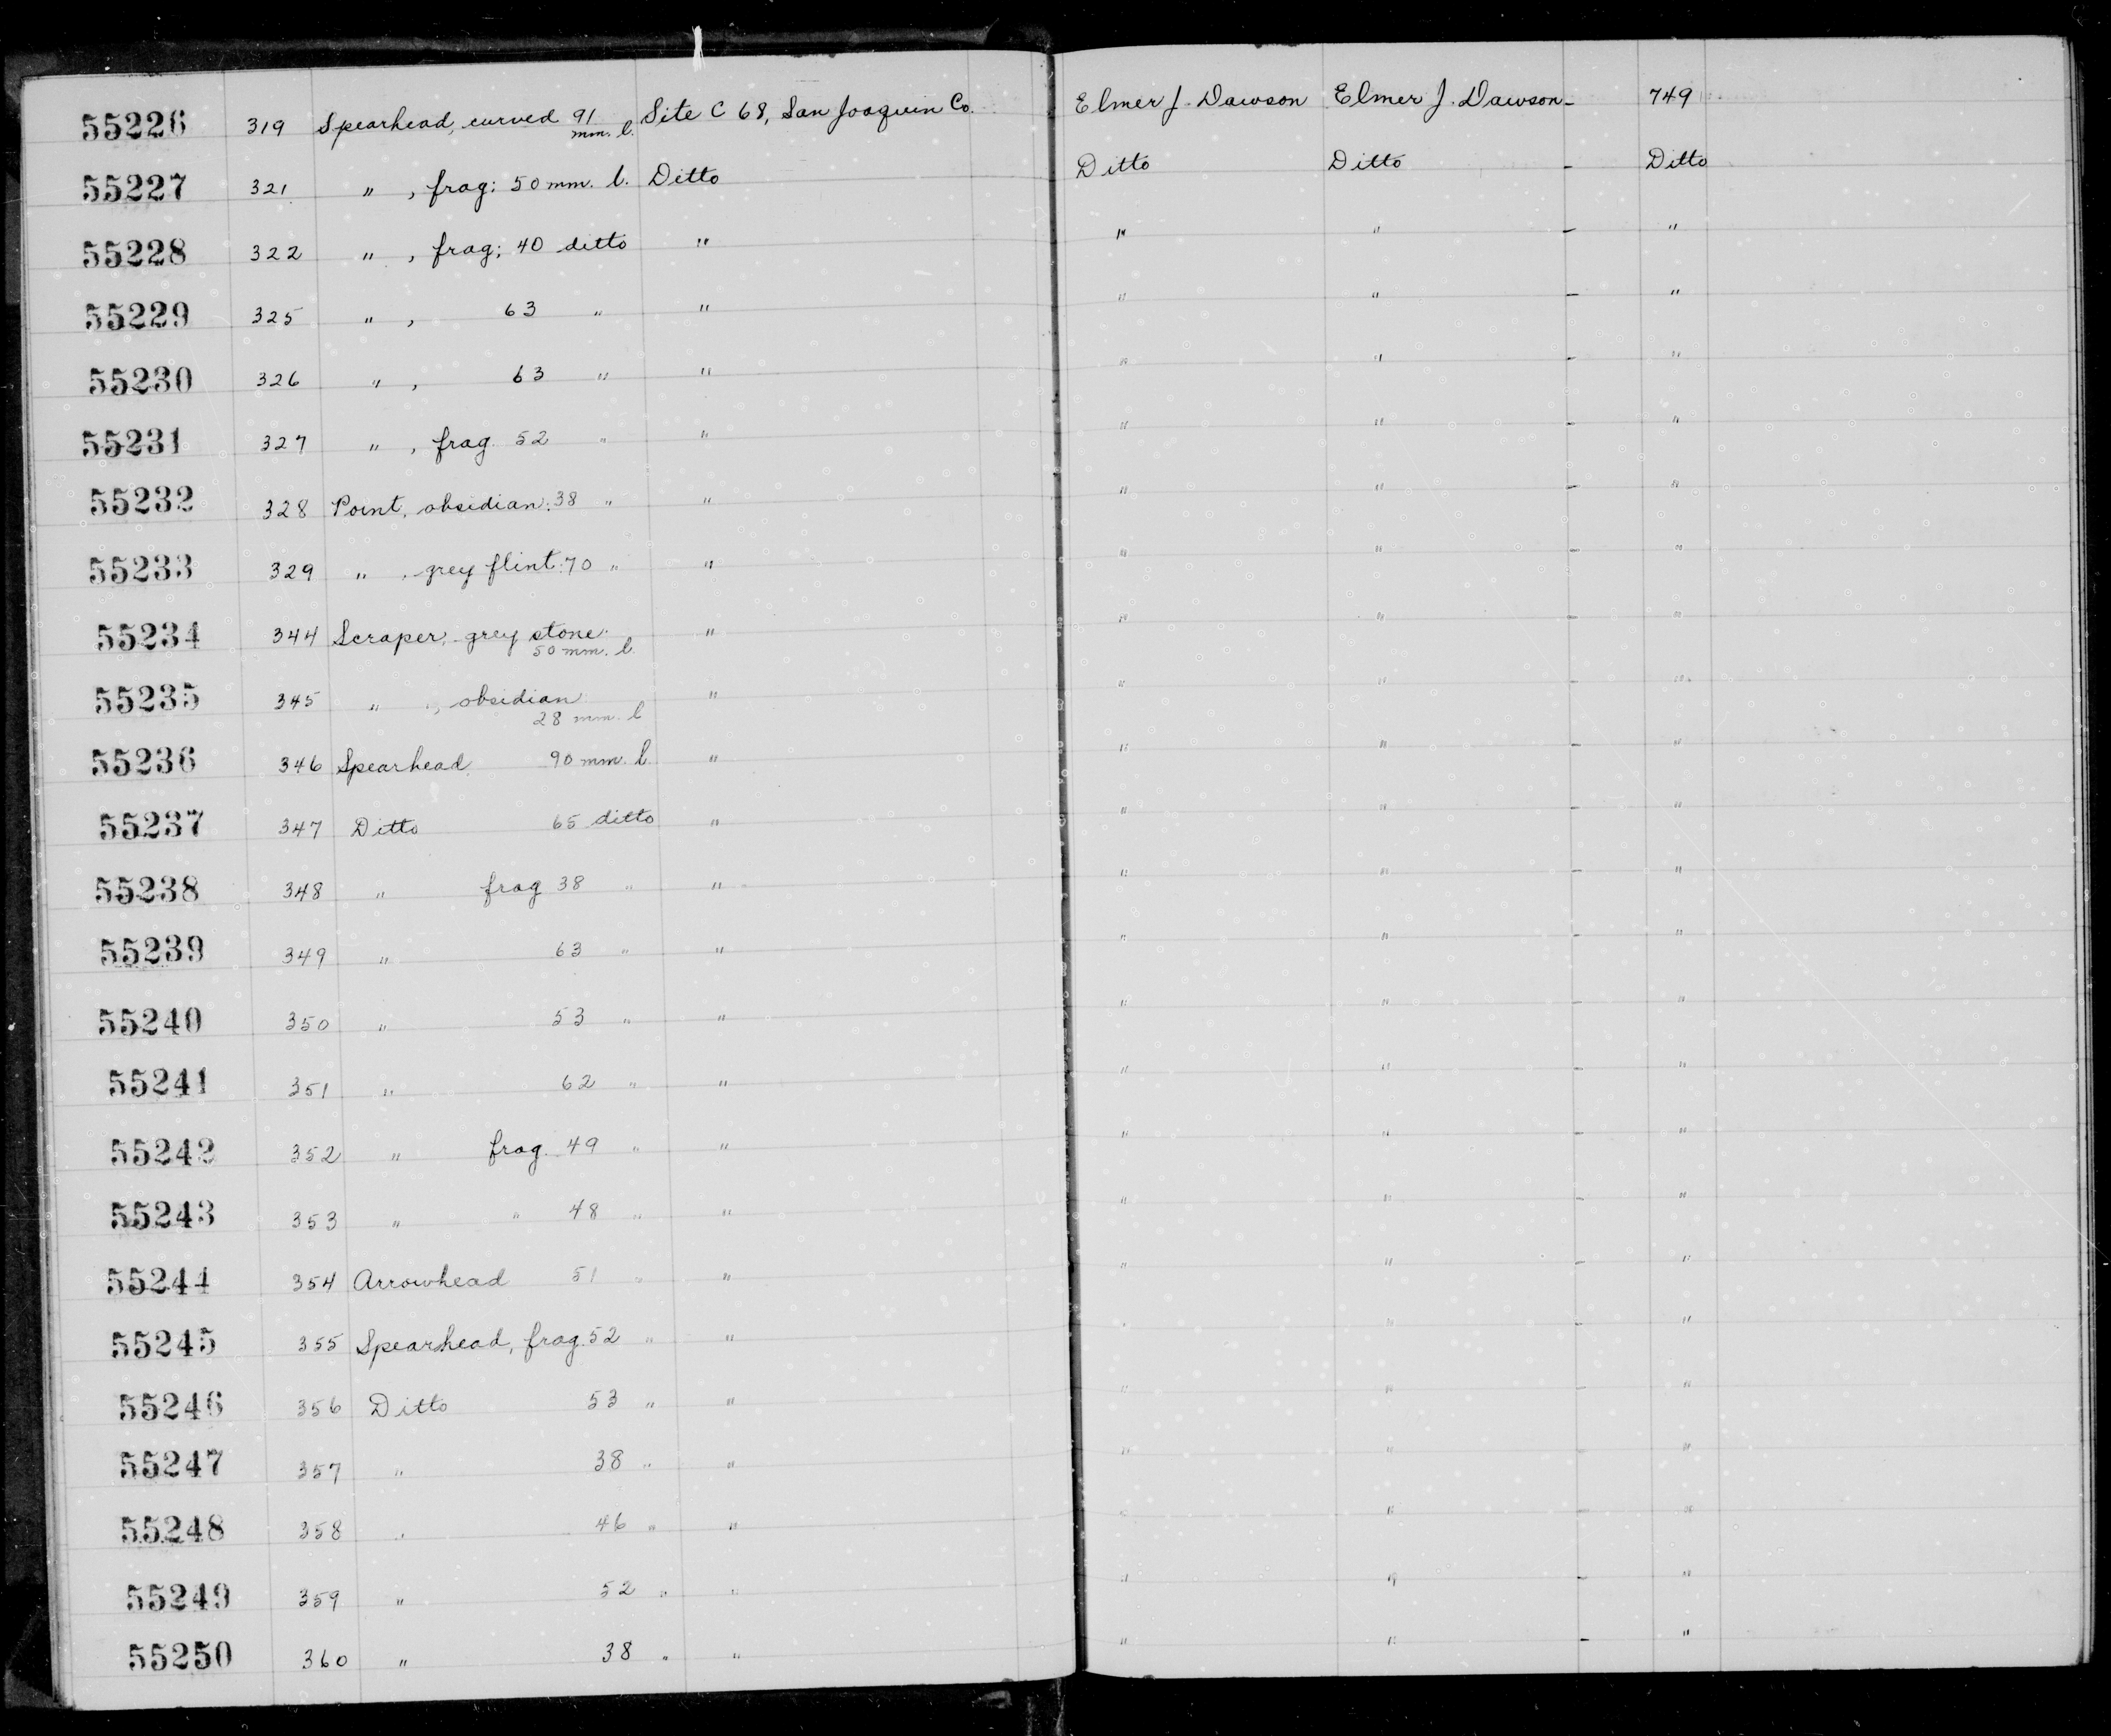 55226 319 Spearhead, curved 91 mm. l. Site C 68, San Joaquin Co. Elmer J. Dawson Elmer J. Dawson - 749
55227 321 " , frag: 50 mm. l. Ditto Ditto Ditto - Ditto
55228 322 " , frag; 40 ditto " " " - "
55229 325 " , 63 " " " " - "
55230 326 " , 63 " " " " - "
55231 327 " , frag. 52 " " " " - "
55232 328 Point, obsidian: 38 " " " " - "
55233 329 " , grey flint: 70 " " " " - "
55234 344 Scraper, grey stone. 50 mm. l. " " " - "
55235 345 " , obsidian 28 mm. l " " " - "
55236 346 Spearhead 90 mm. l. " " " - "
55237 347 Ditto 65 ditto " " " - "
55238 348 " frag 38 " " " " - "
55239 349 " 63 " " " " - "
55240 350 " 53 " " " " - "
55241 351 " 62 " " " " - "
55242 352 " frag. 49 " " " " - "
55243 353 " " 48 " " " " - "
55244 354 Arrowhead 51 " " " " - "
55245 355 Spearhead, frag. 52 " " " " - "
55246 356 Ditto 53 " " " " - "
55247 357 " 38 " " " " - "
55248 358 " 46 " " " " - "
55249 359 " 52 " " " " - "
55250 360 " 38 " " " " - "